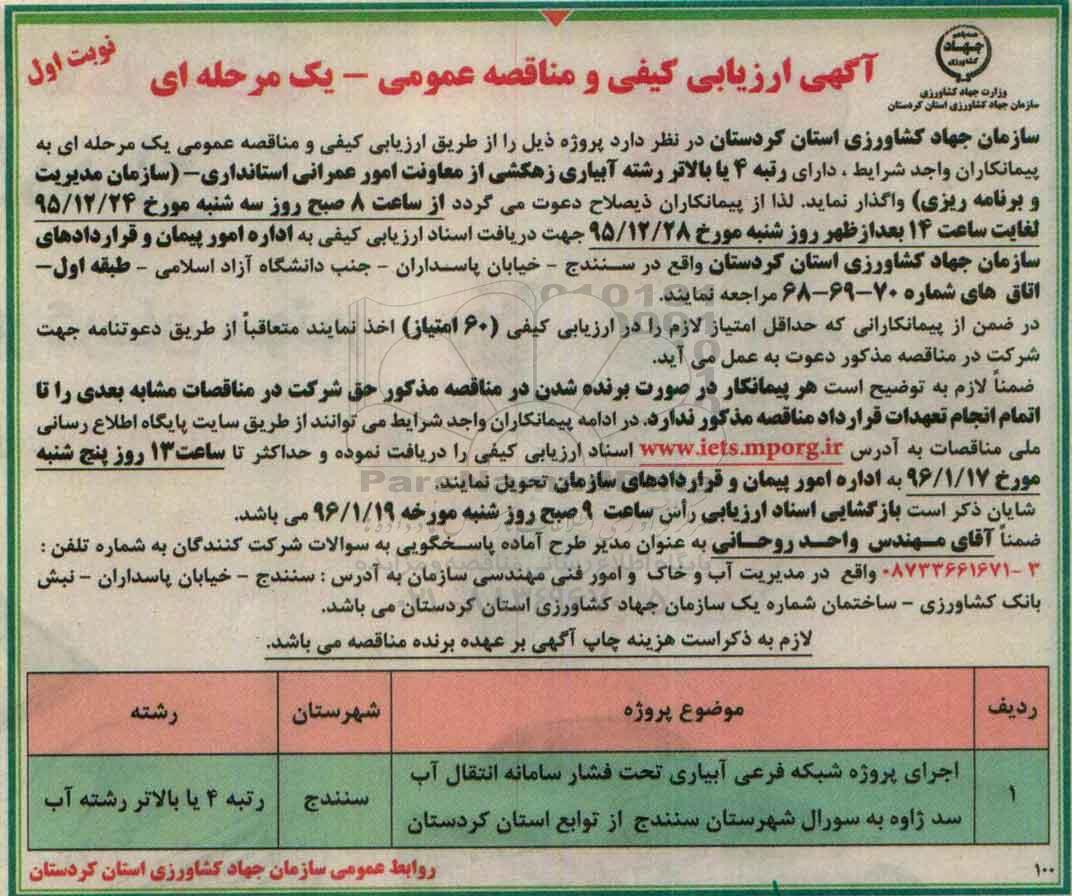 نوبت اول
آگهی ارزیابی کیفی و مناقصه عمومی – یک مرحله ای
جهاد
کشاورزی
وزارت جهاد کشاورزی
سازمان جهاد کشاورزی استان کردستان
سازمان جهاد کشاورزی استان کردستان در نظر دارد پروژه ذیل را از طریق ارزیابی کیفی و مناقصه عمومی یک مرحله ای به
پیمانکاران واجد شرایط ، دارای رتبه ۴ یا بالاتر رشته آبیاری زهکشی از معاونت امور عمرانی استانداری– (سازمان مدیریت
و برنامه ریزی) واگذار نماید. لذا از پیمانکاران ذیصلاح دعوت می گردد از ساعت ۸ صبح روز سه شنبه مورخ ۹۵/۱۲/۲۴
لغایت ساعت ۱۴ بعدازظهر روز شنبه مورخ ۹۵/۱۲/۲۸ جهت دریافت اسناد ارزیابی کیفی به اداره امور پیمان و قراردادهای
سازمان جهاد کشاورزی استان کردستان واقع در سنندج – خیابان پاسداران – جنب دانشگاه آزاد اسلامی – طبقه اول–
اتاق های شماره ۷۰–۶۹–۶۸ مراجعه نمایند.
در ضمن از پیمانکارانی که حداقل امتیاز لازم را در ارزیابی کیفی (۶۰ امتیاز) اخذ نمایند متعاقباً از طریق دعوتنامه جهت
شرکت در مناقصه مذکور دعوت به عمل می آید.
ضمناً لازم به توضیح است هر پیمانکار در صورت برنده شدن در مناقصه مذکور حق شرکت در مناقصات مشابه بعدی را تا
اتمام انجام تعهدات قرارداد مناقصه مذکور ندارد. در ادامه پیمانکاران واجد شرایط می توانند از طریق سایت پایگاه اطلاع رسانی
ملی مناقصات به آدرس www.iets.mporg.ir اسناد ارزیابی کیفی را دریافت نموده و حداکثر تا ساعت۱۳ روز پنج شنبه
مورخ ۹۶/۱/۱۷ به اداره امور پیمان و قراردادهای سازمان تحویل نمایند.
شایان ذکر است بازگشایی اسناد ارزیابی رأس ساعت ۹ صبح روز شنبه مورخه ۹۶/۱/۱۹ می باشد.
ضمناً آقای مهندس واحد روحانی به عنوان مدیر طرح آماده پاسخگویی به سوالات شرکت کنندگان به شماره تلفن :
۳ -۰۸۷۳۳۶۶۱۶۷۱ واقع در مدیریت آب و خاک و امور فنی مهندسی سازمان به آدرس : سنندج – خیابان پاسداران – نبش
بانک کشاورزی – ساختمان شماره یک سازمان جهاد کشاورزی استان کردستان می باشد.
لازم به ذکراست هزینه چاپ آگهی بر عهده برنده مناقصه می باشد.
ردیف موضوع پروژه شهرستان رشته
۱ اجرای پروژه شبکه فرعی آبیاری تحت فشار سامانه انتقال آب سد ژاوه به سورال شهرستان سنندج از توابع استان کردستان سنندج رتبه ۴ یا بالاتر رشته آب
۱۰۰
روابط عمومی سازمان جهاد کشاورزی استان کردستان